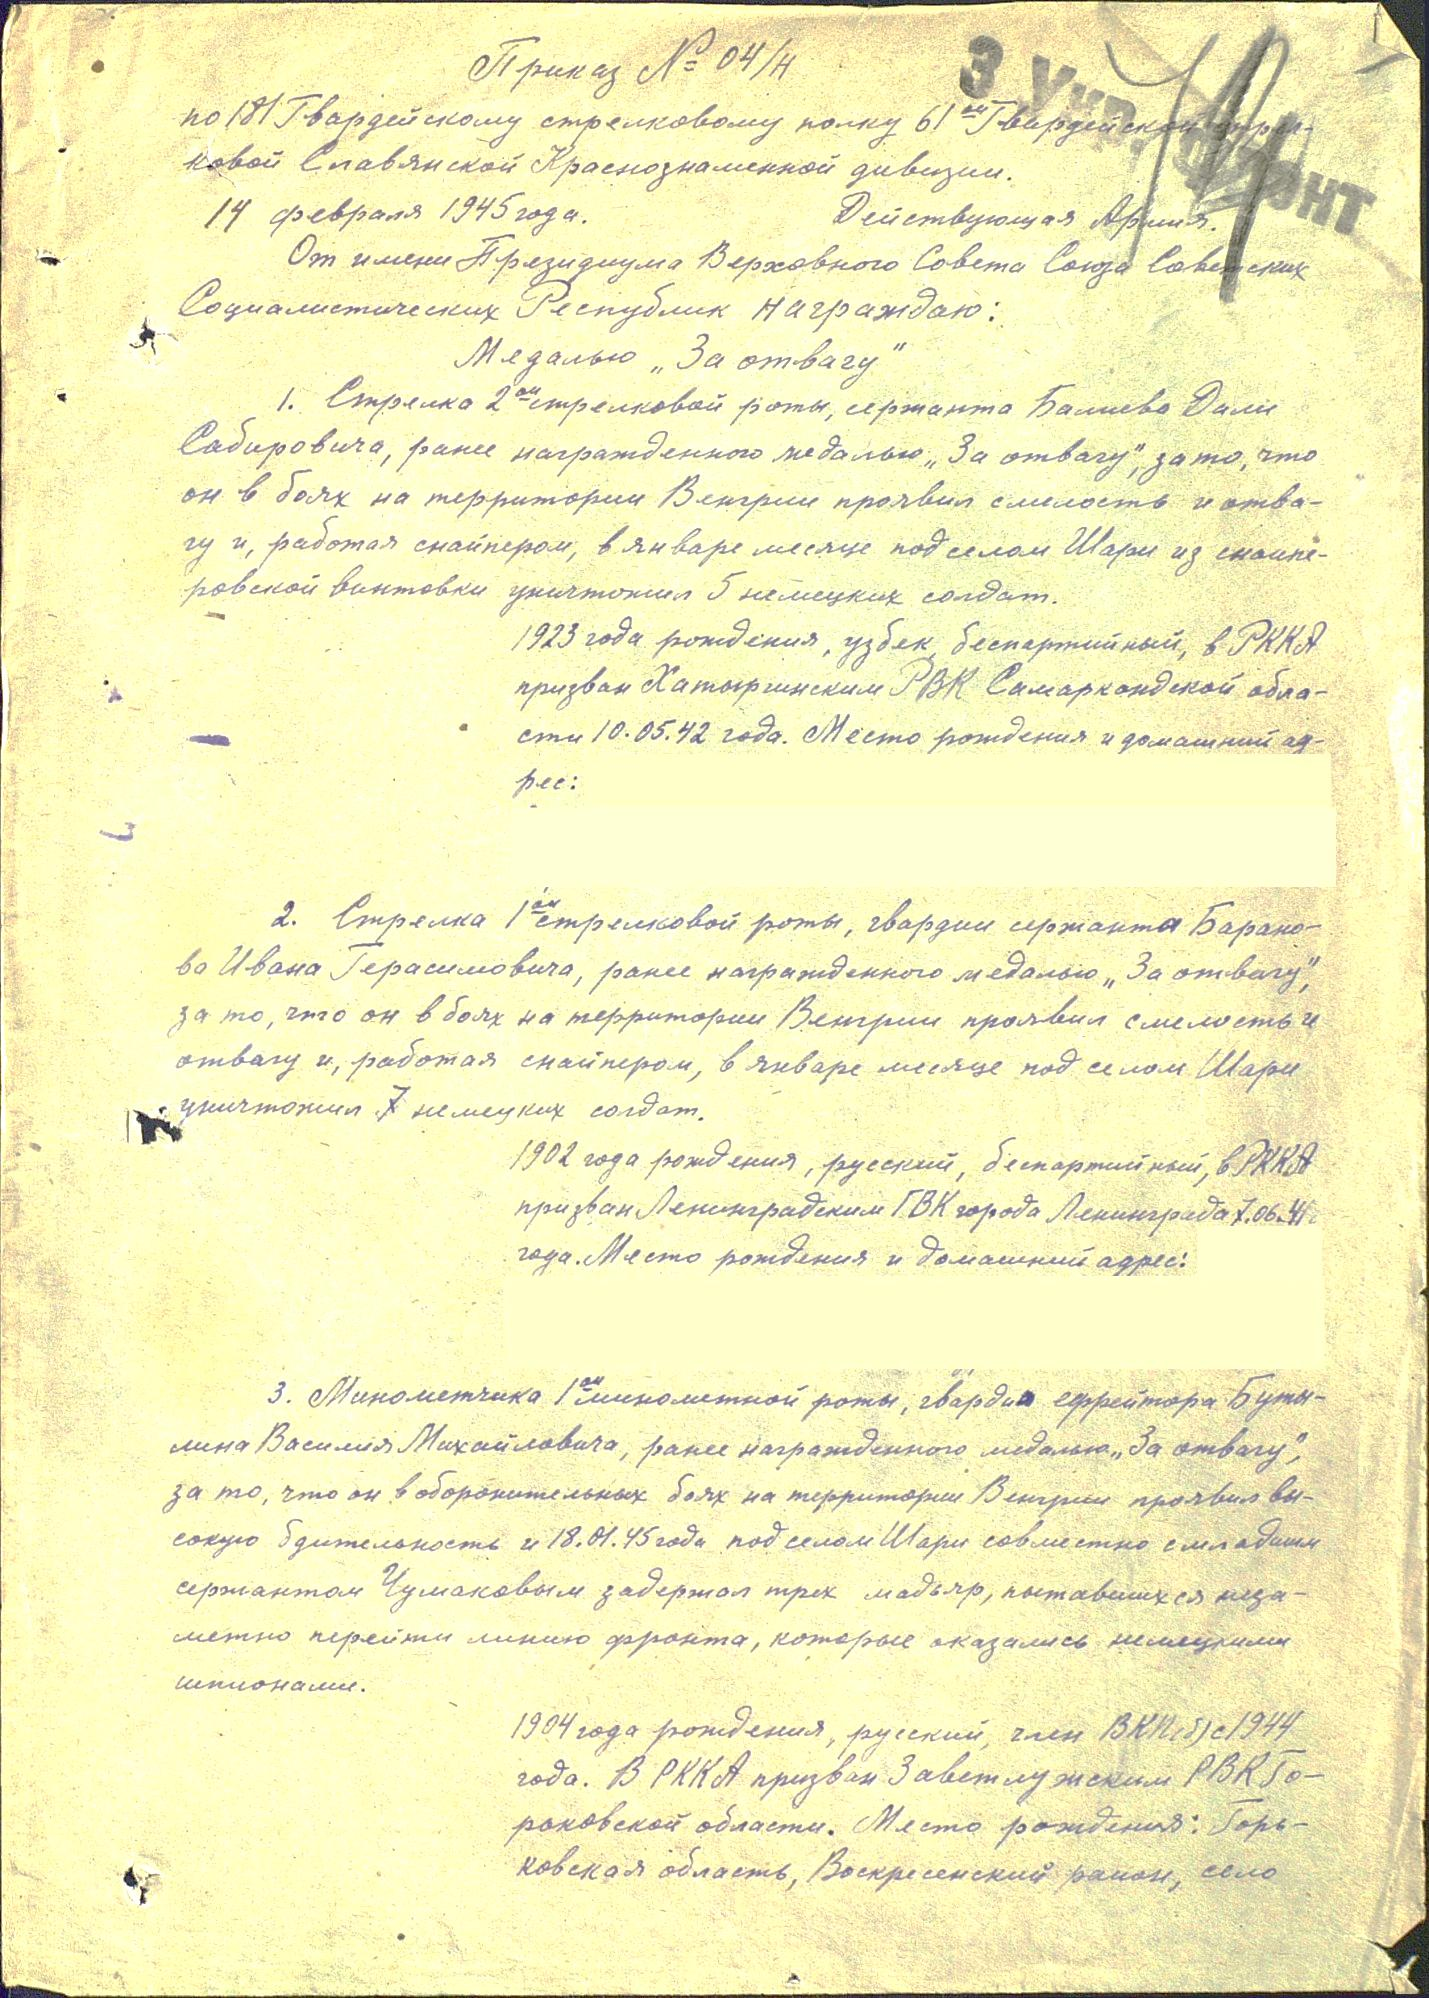 Приказ № 04/н
3 Укр. фронт
по 181 Гвардейскому стрелковому полку 61ой Гвардейской стрел-
ковой Славянской Краснознаменной дивизии.
14 февраля 1945 года. Действующая Армия.
От имени Президиума Верховного Совета Союза Советских
Социалистических Республик награждаю:
Медалью „За отвагу"
1. Стрелка 2ой стрелковой роты, сержанта Балиева Дали
Сабировича, ранее награжденного медалью „За отвагу", за то, что
он в боях на территории Венгрии проявил смелость и отва-
гу и, работая снайпером, в январе месяце под селом Шари из снайпе-
ровской винтовки уничтожил 5 немецких солдат.
1923 года рождения, узбек, беспартийный, в РККА
призван Хатырчинским РВК Самаркандской обла-
сти 10.05.42 года. Место рождения и домашний ад-
рес:
2. Стрелка 1ой стрелковой роты, гвардии сержанта Барано-
ва Ивана Герасимовича, ранее награжденного медалью „За отвагу",
за то, что он в боях на территории Венгрии проявил смелость и
отвагу и, работая снайпером, в январе месяце под селом Шари
уничтожил 7 немецких солдат.
1902 года рождения, русский, беспартийный, в РККА
призван Ленинградским ГВК города Ленинграда 7.06.41
года. Место рождения и домашний адрес:
3. Минометчика 1ой минометной роты, гвардии ефрейтора Буты-
лина Василия Михайловича, ранее награжденного медалью „За отвагу",
за то, что он в оборонительных боях на территории Венгрии проявил вы-
сокую бдительность и 18.01.45 года под селом Шари совместно с младшим
сержантом Чумаковым задержал трех мадьяр, пытавшихся неза-
метно перейти линию фронта, которые оказались немецкими
шпионами.
1904 года рождения, русский, член ВКП(б) с 1944
года. В РККА призван Заветлужским РВК Го-
рьковской области. Место рождения: Горь-
ковская область, Воскресенский район, село